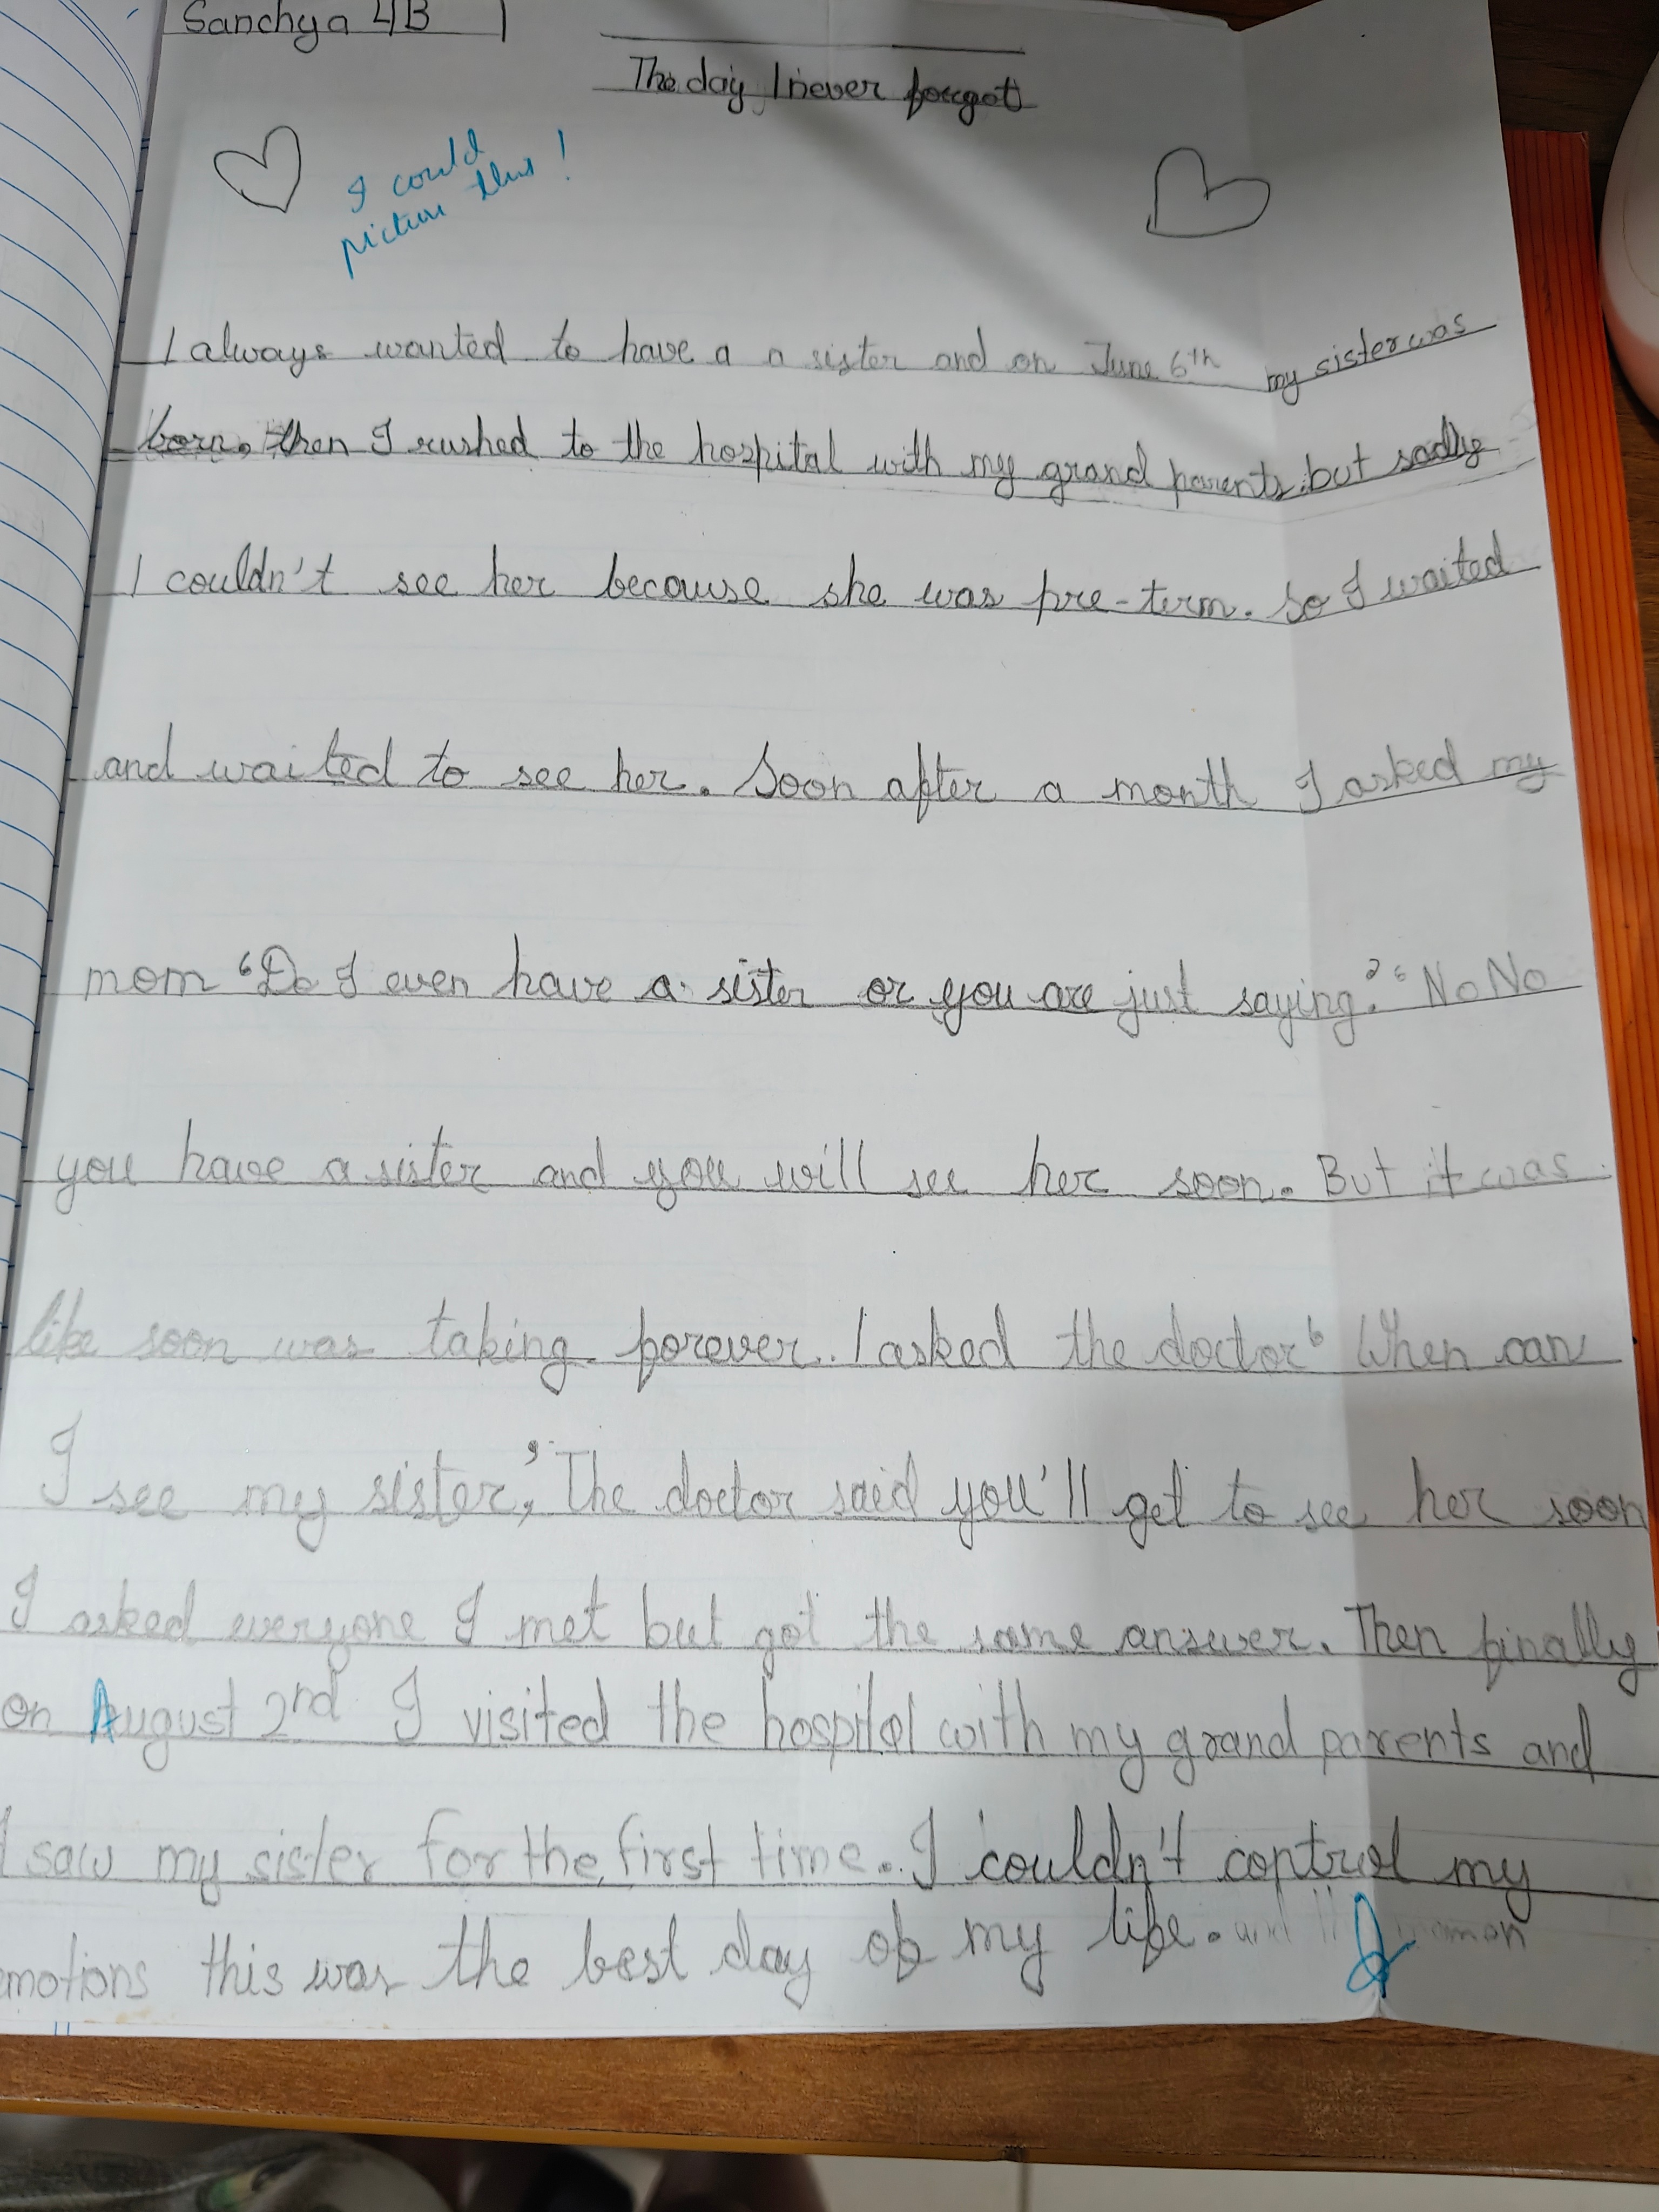 Sanchya 4B
The day I never forgot
I could
picture this!
I always wanted to have a a sister and on June 6th my sister was
born. then I rushed to the hospital with my grand parents. but sadly
I couldn't see her because she was pre-term. So I waited
and waited to see her. Soon after a month I asked my
mom 'Do I even have a sister or you are just saying.' 'No No
you have a sister and you will see her soon. But it was
like soon was taking forever. I asked the doctor 'When can
I see my sister,' The doctor said you'll get to see her soon
I asked everyone I met but got the same answer. Then finally
on August 2nd I visited the hospital with my grand parents and
I saw my sister for the first time. I couldn't control my
emotions this was the best day of my life.